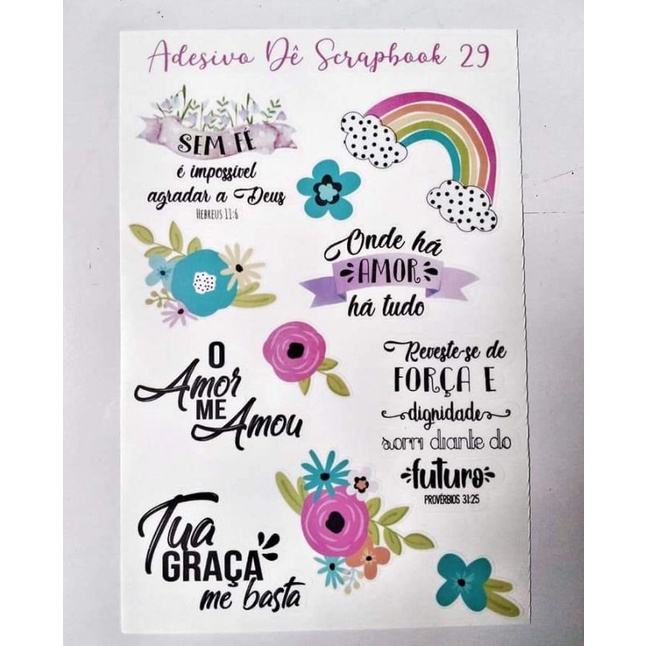 Adesivo Dê Scrapbook 29
SEM FÉ
é impossível
agradar a Deus
HEBREUS 11:6
Onde há
AMOR
há tudo
O
Amor
ME
Amou
Reveste-se de
FORÇA E
dignidade
sorri diante do
futuro
PROVÉRBIOS 31:25
Tua
GRAÇA
me basta